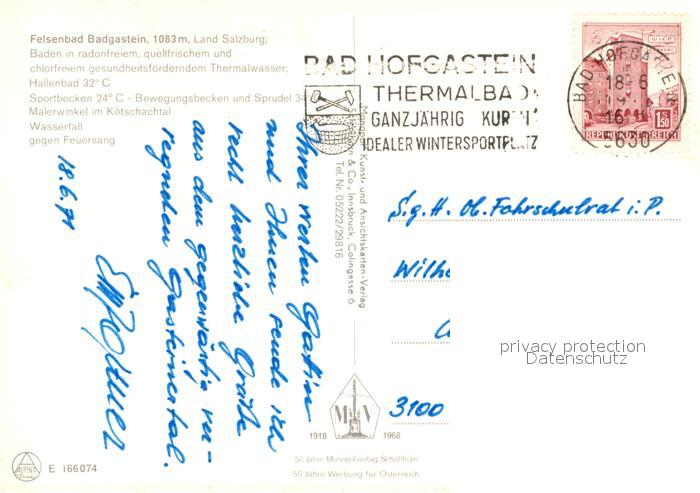 Felsenbad Badgastein, 1083 m, Land Salzburg;
Baden in radonfreiem, quellfrischem und
chlorfreiem gesundheitsförderndem Thermalwasser;
Hallenbad 32° C
Sportbecken 24° C - Bewegungsbecken und Sprudel 34
Malerwinkel im Kötschachtal
Wasserfall
gegen Feuersang
BAD HOFGASTEIN
THERMALBAD
GANZJÄHRIG KUREN
IDEALER WINTERSPORTPLATZ
BAD HOFGASTEIN
18.-6
16
5630
WIEN
S
1.50
REPUBLIK ÖSTERREICH
Ihrer werten Gattin
und Ihnen sende ich
recht herzliche Grüße
aus dem gegenwärtig ver-
regneten Gasteinertal.
18.6.71
Monopol Kunst- und Ansichtskarten-Verlag
& Co., Innsbruck, Colingasse 6
Tel. Nr. 05222/29816
S.g.H. Ob. Fahrschulrat i. P.
Wilhe
3100
privacy protection
Datenschutz
M V
1918 1968
50 Jahre Monopolverlag Schöllhorn
50 Jahre Werbung für Österreich
ALPINA
E 166074